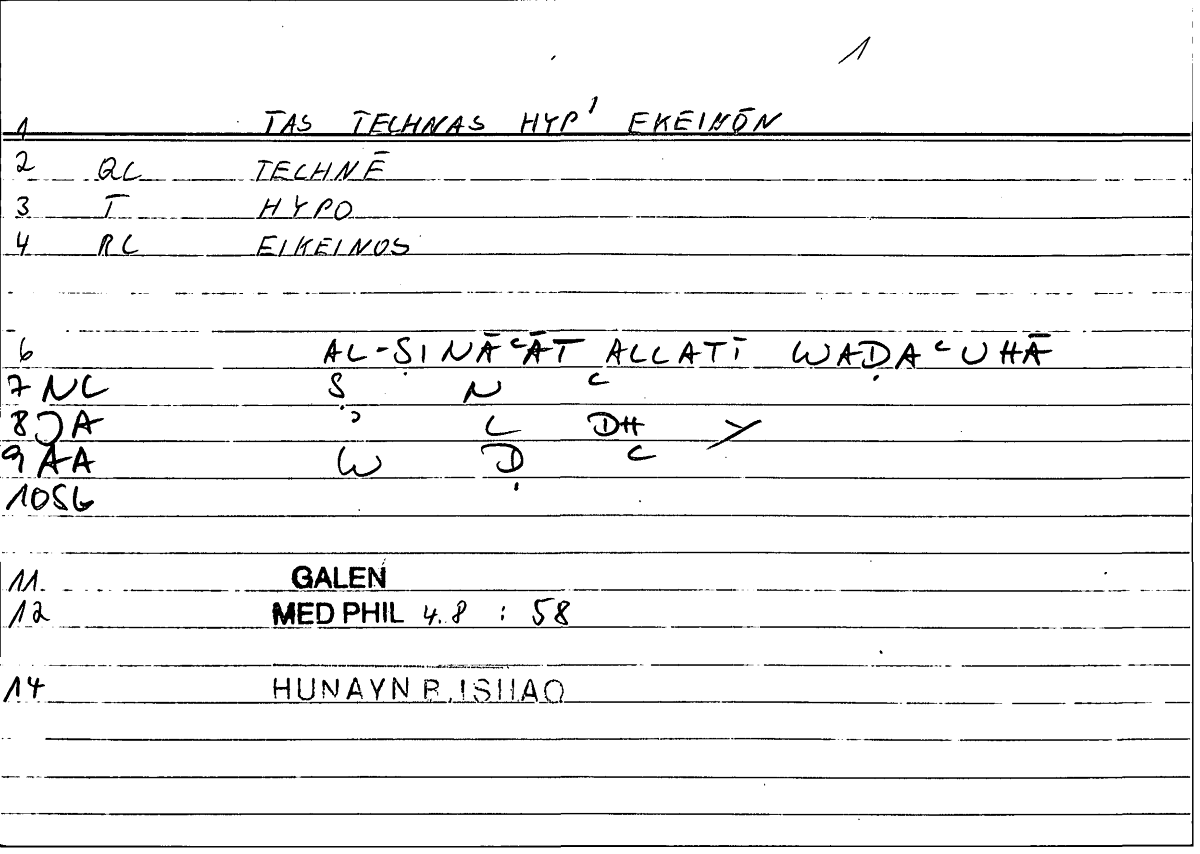 1
1 TAS TECHNAS HYP' EKEINŌN
2 QC TECHNĒ
3 T HYPO
4 RC EIKEINOS
6 AL-ṢINĀʿĀT ALLATĪ WAḌAʿUHĀ
7 NC Ṣ N ʿ
8 JA ʾ L DH Y
9 AA W Ḍ ʿ
10 SG
11. GALEN
12 MED PHIL 4.8 : 58
14 HUNAYN B. ISHAQ